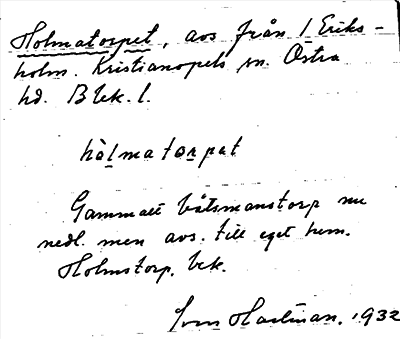 Holmatorpet, avs från 1 Eriks-
holm. Kristianopels sn. Östra
hd. Blek. l.
hòlmatorpat
Gammalt båtsmanstorp nu
nedl. men avs. till eget hem.
Holmstorp, bek.
Sven Hartman. 1932